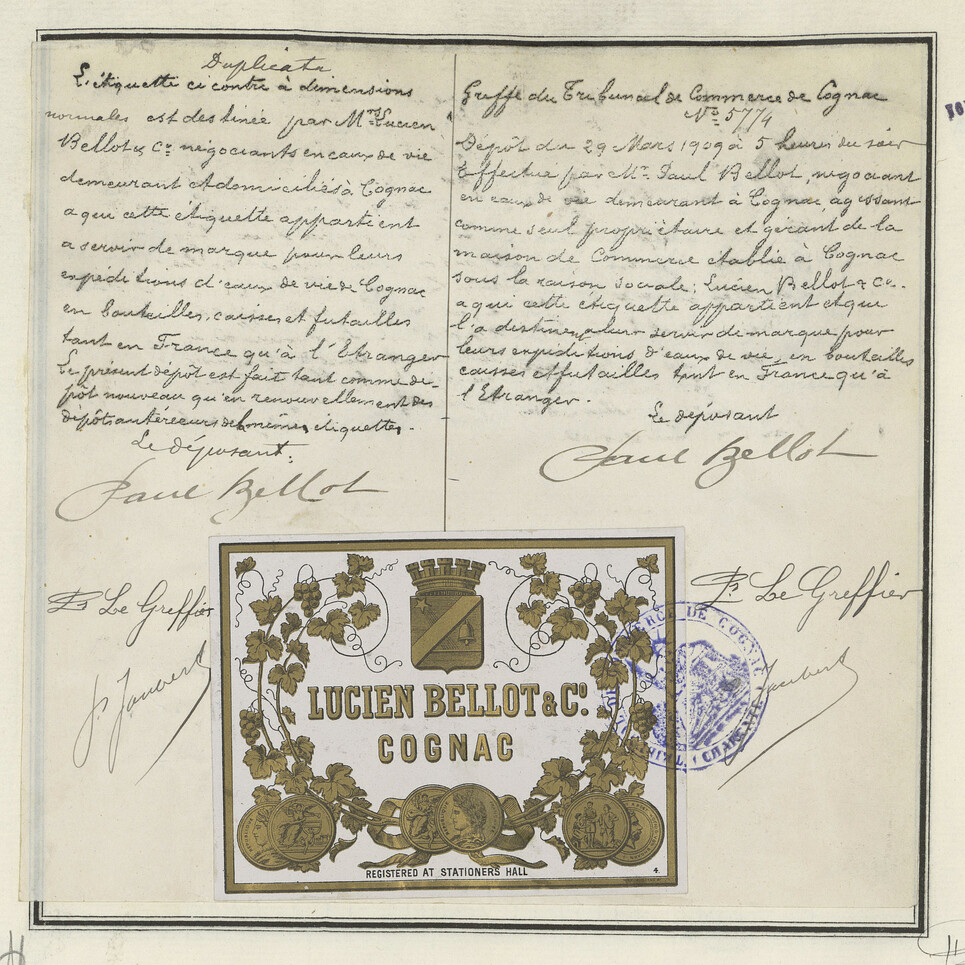 Duplicata
L'étiquette ci contre à dimensions
normales est destinée par Mrs Lucien
Bellot & Co négociants en eaux de vie
demeurant et domiciliés à Cognac
a qui cette étiquette appartient
a servir de marque pour leurs
expéditions d'eaux de vie de Cognac
en bouteilles, caisses et futailles
tant en France qu'à l'Etranger
Le présent dépôt est fait tant comme dé-
pôt nouveau qu'en renouvellement des
dépôts antérieurs de mêmes étiquettes.
Le déposant:
Paul Bellot
Pr Le Greffier
Greffe du Tribunal de Commerce de Cognac
No 5774
Dépôt du 29 Mars 1909 à 5 heures du soir
Effectué par Mr. Paul Bellot, négociant
en eaux de vie demeurant à Cognac, agissant
comme seul propriétaire et gérant de la
maison de Commerce établie à Cognac
sous la raison sociale; Lucien Bellot & Co.
a qui cette étiquette appartient et qui
l'a destinée a leur servir de marque pour
leurs expéditions d'eaux de vie en boutailles
caisses et futailles tant en France qu'à
l'Etranger.
Le déposant
Paul Bellot
Pr Le Greffier
LUCIEN BELLOT & Co.
COGNAC
REGISTERED AT STATIONERS HALL
4.
COMMERCE DE COGNAC